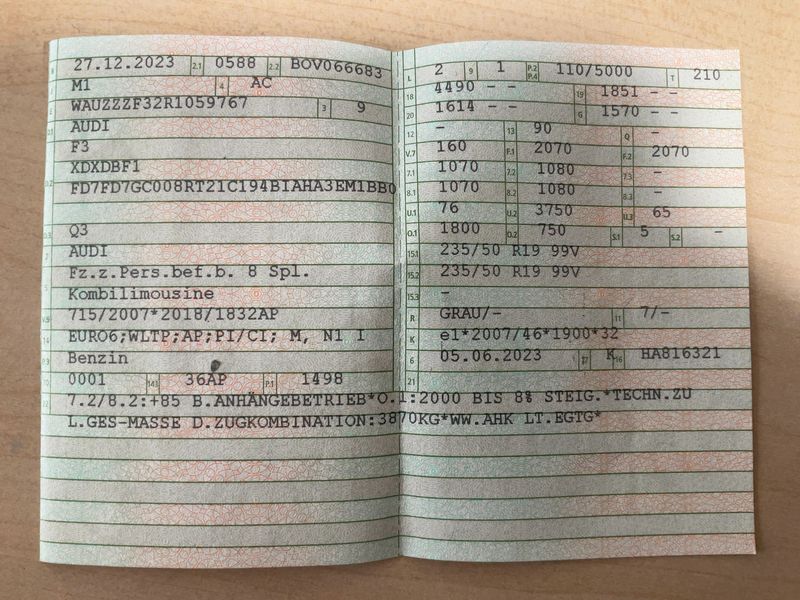 B 27.12.2023 2.1 0588 2.2 BOV066683
J M1 4 AC
E WAUZZZF32R1059767 3 9
D.1 AUDI
F3
XDXDBF1
D.2 FD7FD7GC008RT21C194BIAHA3EM1BB0
D.3 Q3
2 AUDI
5 Fz.z.Pers.bef.b. 8 Spl.
Kombilimousine
V.9 715/2007*2018/1832AP
14 EURO6;WLTP;AP;PI/CI; M, N1 I
P.3 Benzin
10 0001 14.1 36AP P.1 1498
L 2 9 1 P.2 P.4 110/5000 T 210
18 4490 - - 19 1851 - -
20 1614 - - G 1570 - -
12 - 13 90 Q -
V.7 160 F.1 2070 F.2 2070
7.1 1070 7.2 1080 7.3 -
8.1 1070 8.2 1080 8.3 -
U.1 76 U.2 3750 U.3 65
O.1 1800 O.2 750 S.1 5 S.2 -
15.1 235/50 R19 99V
15.2 235/50 R19 99V
15.3 -
R GRAU/- 11 7/-
K e1*2007/46*1900*32
6 05.06.2023 17 K 16 HA816321
21
22 7.2/8.2:+85 B.ANHÄNGEBETRIEB*O.1:2000 BIS 8% STEIG.*TECHN.ZU
L.GES-MASSE D.ZUGKOMBINATION:3870KG*WW.AHK LT.EGTG*